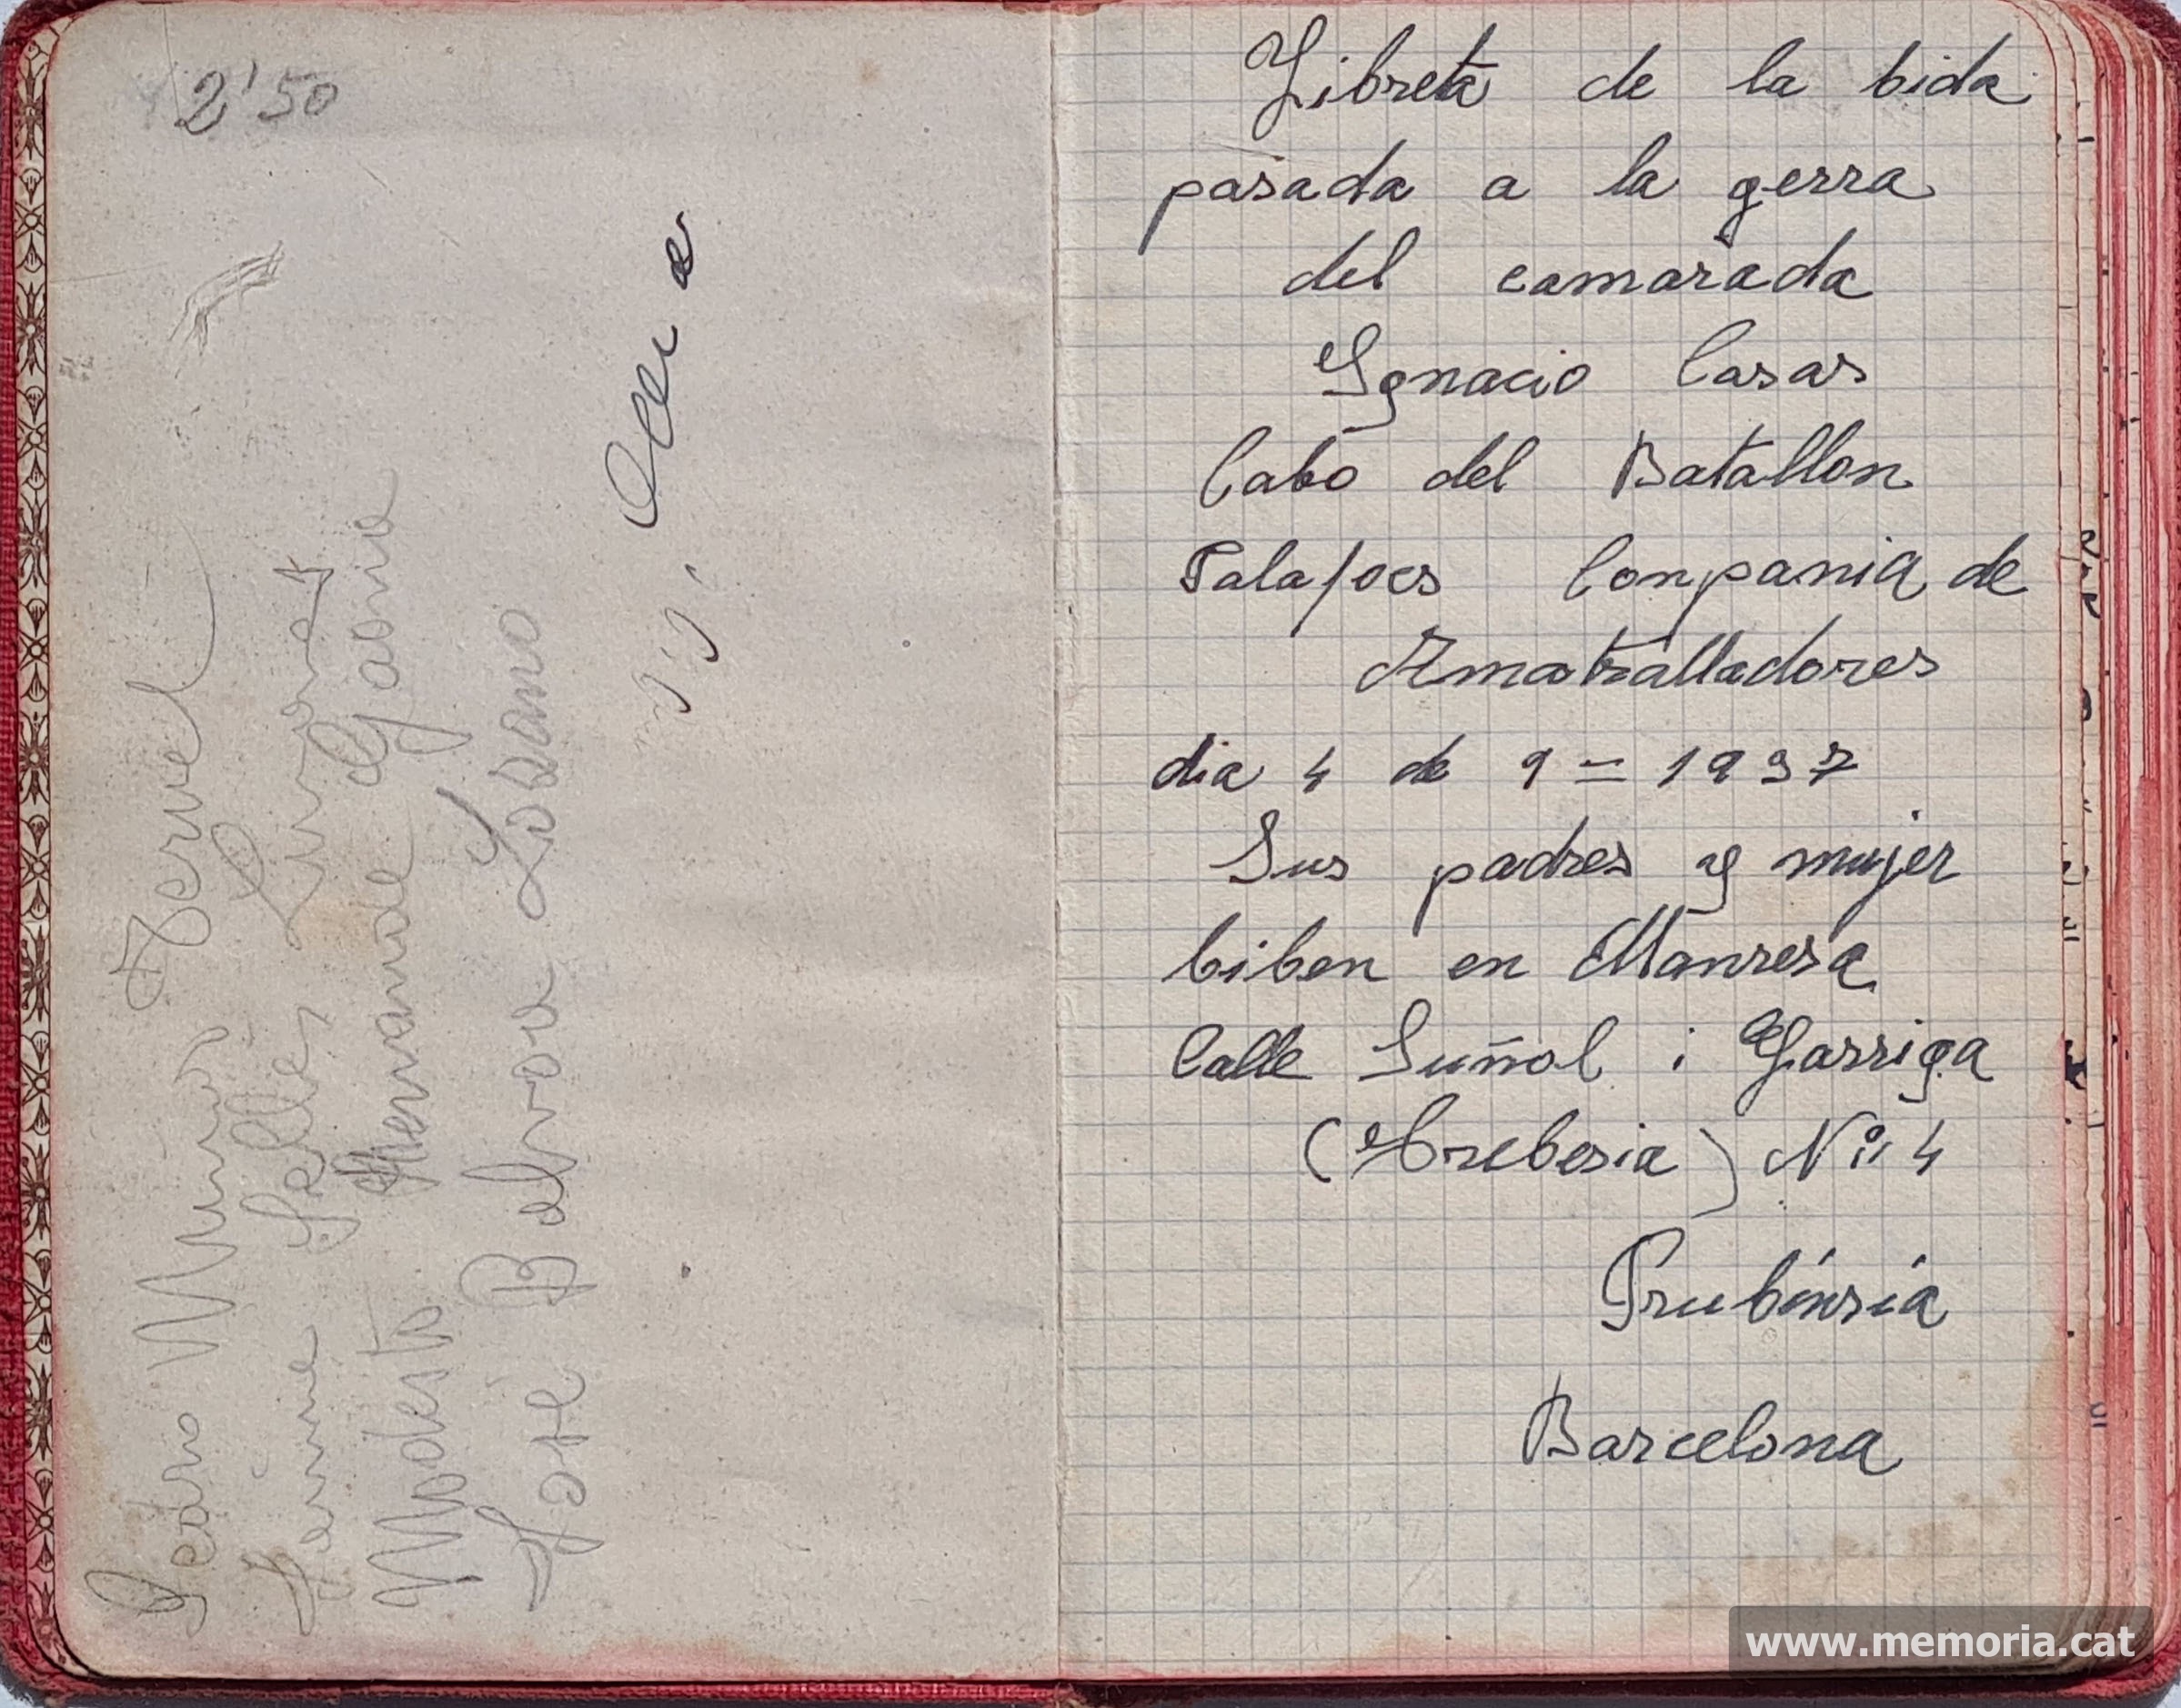 2'50
Pedro Teruel
Jaime Selles
Modesto Hernande Garria
Jose Balvoa Losano
Libreta de la bida
pasada a la gerra
del camarada
Ygnacio Casas
Cabo del Batallon
Palafocs Conpania de
Amatralladores
dia 4 de 9 = 1937
Sus padres y mujer
biben en Manresa
Calle Suñol i Garriga
(trebesia) Nº 4
Prubinsia
Barcelona
www.memoria.cat